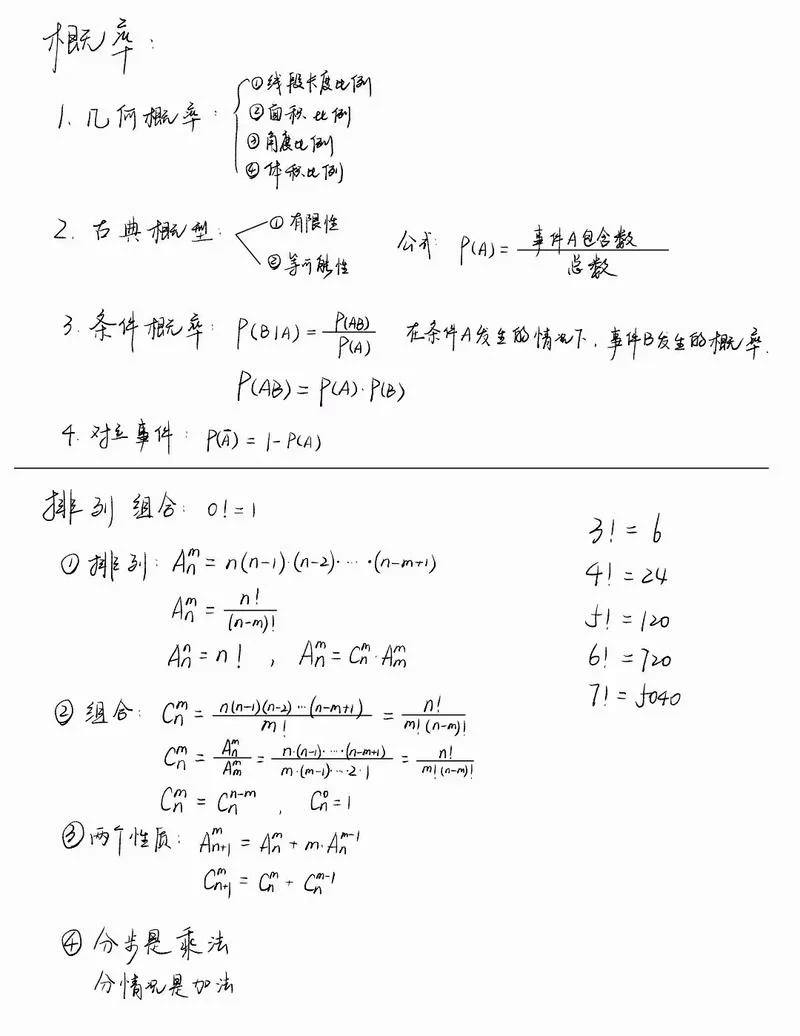 概率:
1. 几何概率: ①线段长度比例
②面积比例
③角度比例
④体积比例
2. 古典概型: ①有限性
②等可能性
公式: P(A) = 事件A包含数 / 总数
3. 条件概率: P(B|A) = P(AB) / P(A) 在条件A发生的情况下, 事件B发生的概率.
P(AB) = P(A)·P(B)
4. 对立事件: P(Ā) = 1-P(A)
排列组合: 0! = 1
① 排列: Aₙᵐ = n(n-1)·(n-2)·…·(n-m+1)
Aₙᵐ = n! / (n-m)!
Aₙⁿ = n! , Aₙᵐ = Cₙᵐ·Aₘᵐ
3! = 6
4! = 24
5! = 120
6! = 720
7! = 5040
② 组合: Cₙᵐ = n(n-1)(n-2)…(n-m+1) / m! = n! / m!(n-m)!
Cₙᵐ = Aₙᵐ / Aₘᵐ = n·(n-1)·…·(n-m+1) / m·(m-1)·…2·1 = n! / m!(n-m)!
Cₙᵐ = Cₙⁿ⁻ᵐ , Cₙ⁰ = 1
③ 两个性质: Aₙ₊₁ᵐ = Aₙᵐ + m·Aₙᵐ⁻¹
Cₙ₊₁ᵐ = Cₙᵐ + Cₙᵐ⁻¹
④ 分步是乘法
分情况是加法